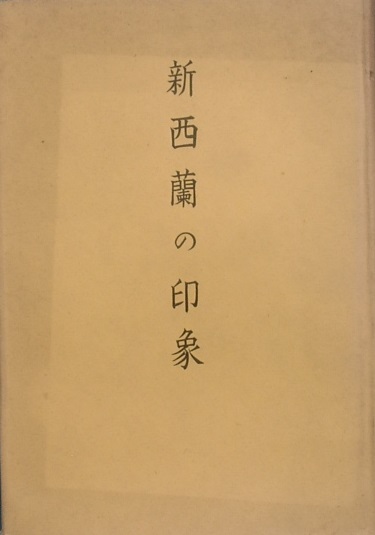 新西蘭の印象